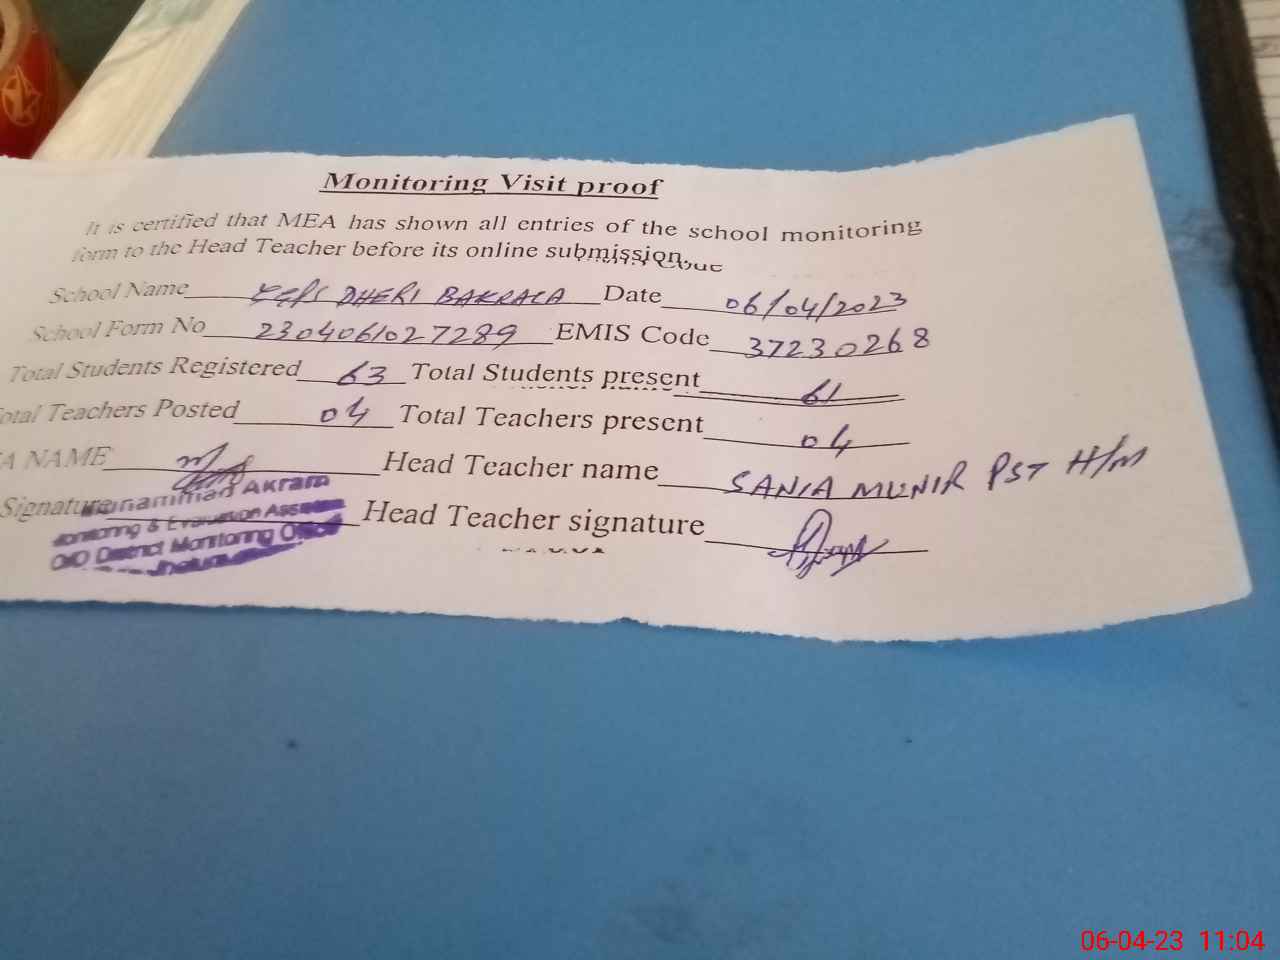 Monitoring Visit proof
It is certified that MEA has shown all entries of the school monitoring
form to the Head Teacher before its online submission.
School Name DHERI BAKRALA Date 06/04/2023
School Form No 2304061027289 EMIS Code 37230268
Total Students Registered 63 Total Students present 61
Total Teachers Posted 04 Total Teachers present 04
A NAME Head Teacher name SANIA MUNIR PST H/M
Signature Head Teacher signature
Muhammad Akram
Monitoring & Evaluation Assistant
O/O District Monitoring Office
Jhelum
06-04-23 11:04